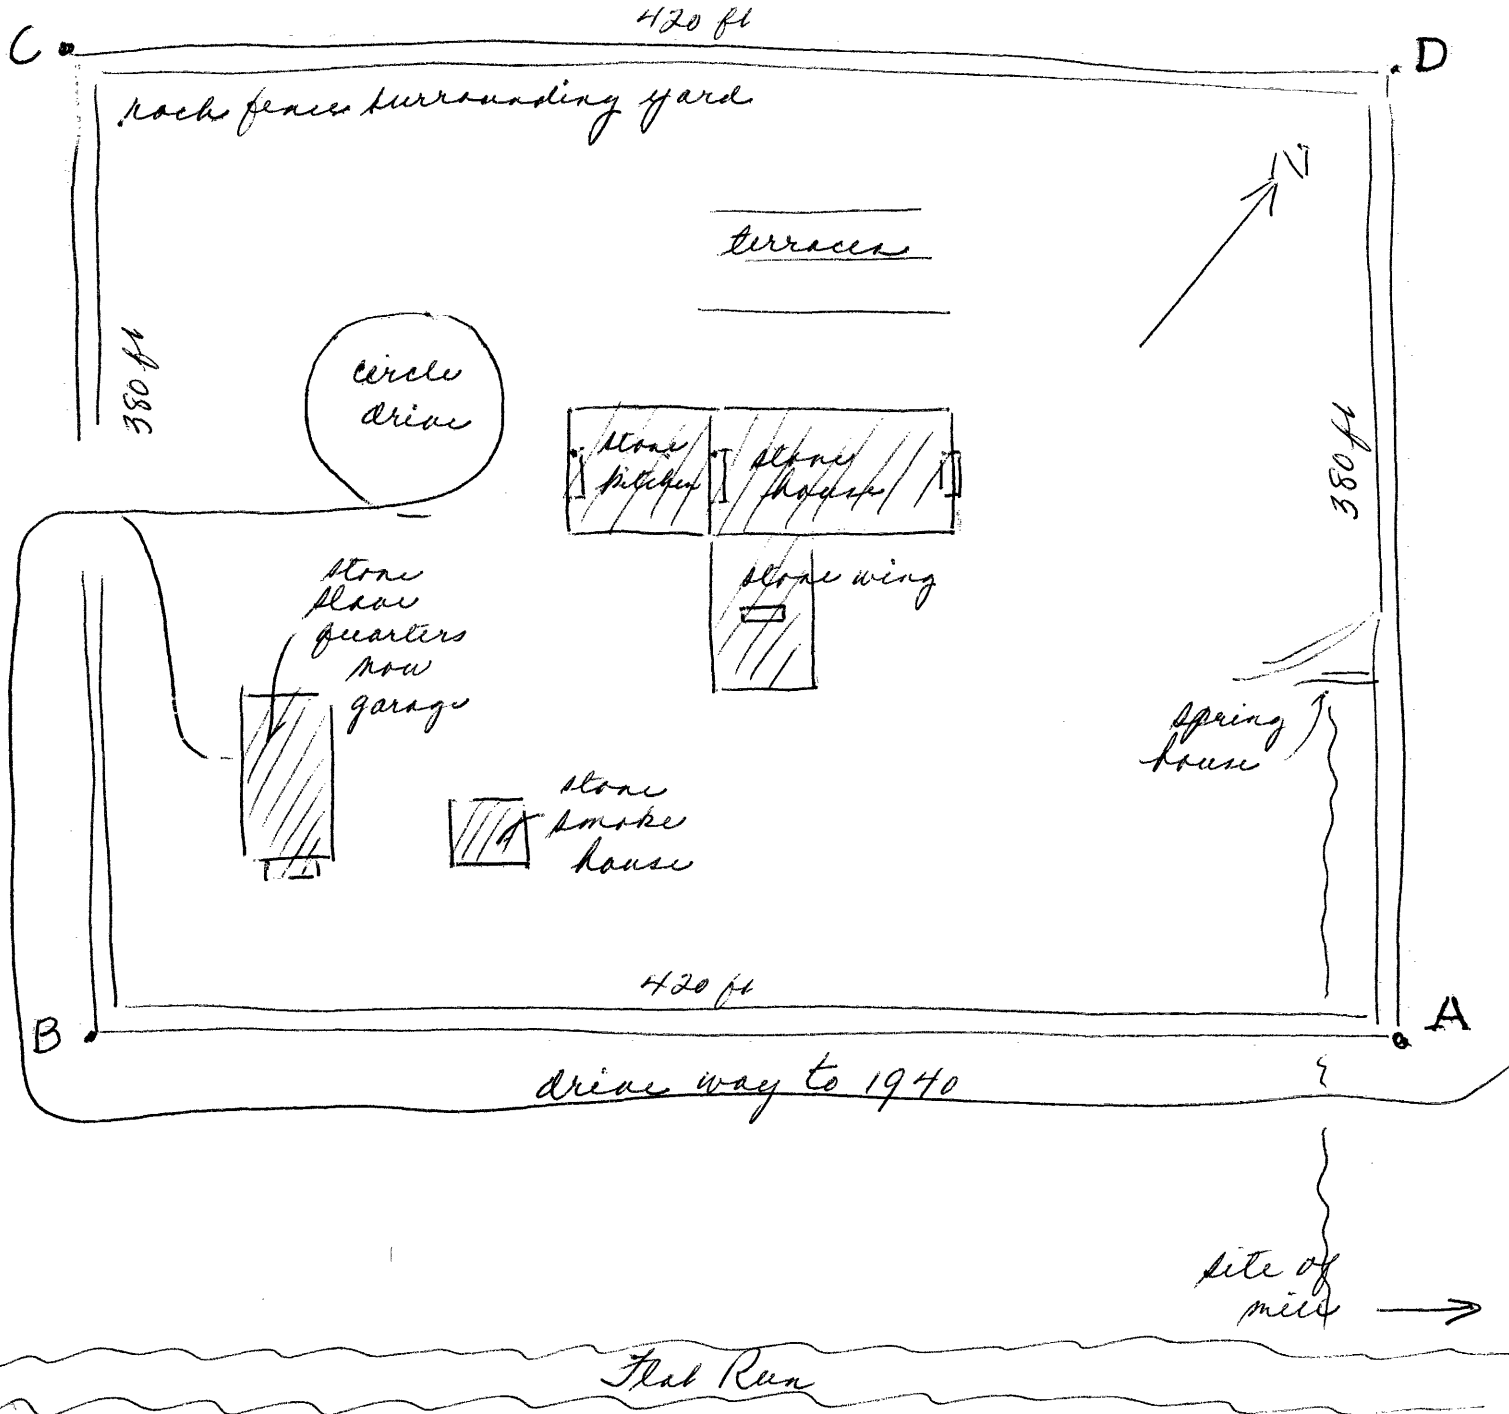 420 ft
C
D
rock fence surrounding yard
N
terraces
380 ft
circle
drive
380 ft
stone
kitchen
stone
house
stone wing
stone
slave
quarters
now
garage
spring
house
stone
smoke
house
420 ft
B
A
drive way to 1940
site of
mill
Flat Run